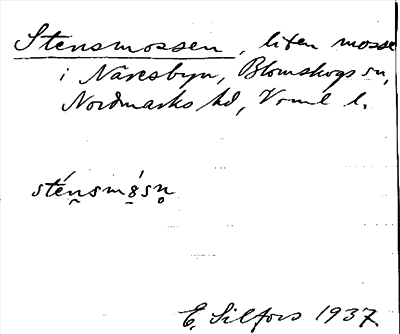 Stensmossen, liten mosse
i Näresbyn, Blomskogs sn,
Nordmarks hd, Vrml l.
sténsmó̱sn̥
E. Silfors 1937.